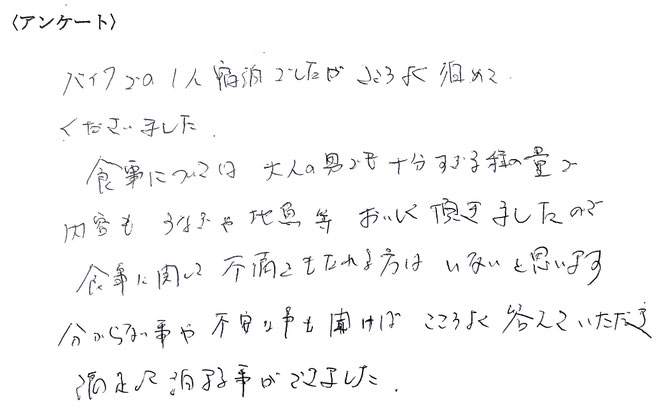 〈アンケート〉
バイクでの1人宿泊でしたが こころよく泊めて
くださいました.
食事については 大人の男でも十分すぎる程の量で
内容も うなぎや地魚等 おいしく頂きましたので
食事に関して 不満をもたれる方は いないと思います
分からない事や 不安な事も聞けば こころよく答えていただき
満足して泊る事ができました.